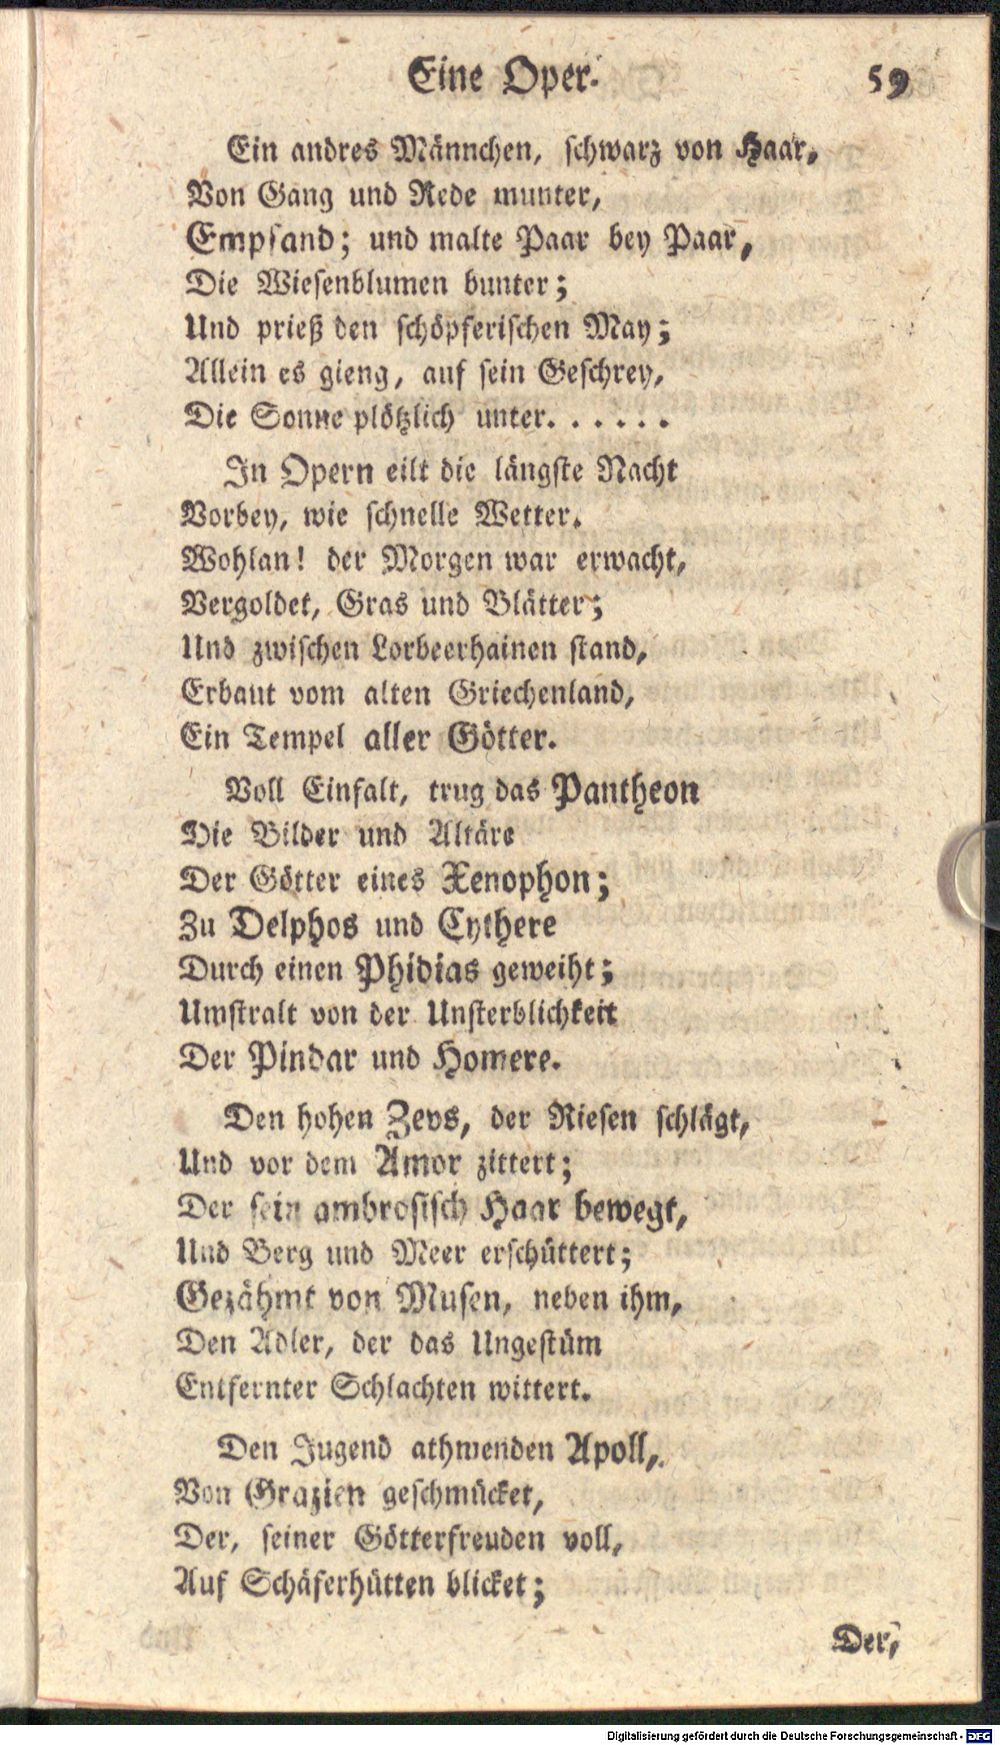 Eine Oper. 59
Ein andres Männchen, schwarz von Haar,
Von Gang und Rede munter,
Empfand; und malte Paar bey Paar,
Die Wiesenblumen bunter;
Und prieß den schöpferischen May;
Allein es gieng, auf sein Geschrey,
Die Sonne plötzlich unter. . . . . .
In Opern eilt die längste Nacht
Vorbey, wie schnelle Wetter.
Wohlan! der Morgen war erwacht,
Vergoldet, Gras und Blätter;
Und zwischen Lorbeerhainen stand,
Erbaut vom alten Griechenland,
Ein Tempel aller Götter.
Voll Einfalt, trug das Pantheon
Die Bilder und Altäre
Der Götter eines Xenophon;
Zu Delphos und Cythere
Durch einen Phidias geweiht;
Umstralt von der Unsterblichkeit
Der Pindar und Homere.
Den hohen Zevs, der Riesen schlägt,
Und vor dem Amor zittert;
Der sein ambrosisch Haar bewegt,
Und Berg und Meer erschüttert;
Gezähmt von Musen, neben ihm,
Den Adler, der das Ungestüm
Entfernter Schlachten wittert.
Den Jugend athmenden Apoll,
Von Grazien geschmücket,
Der, seiner Götterfreuden voll,
Auf Schäferhütten blicket;
Der,
Digitalisierung gefördert durch die Deutsche Forschungsgemeinschaft - DFG